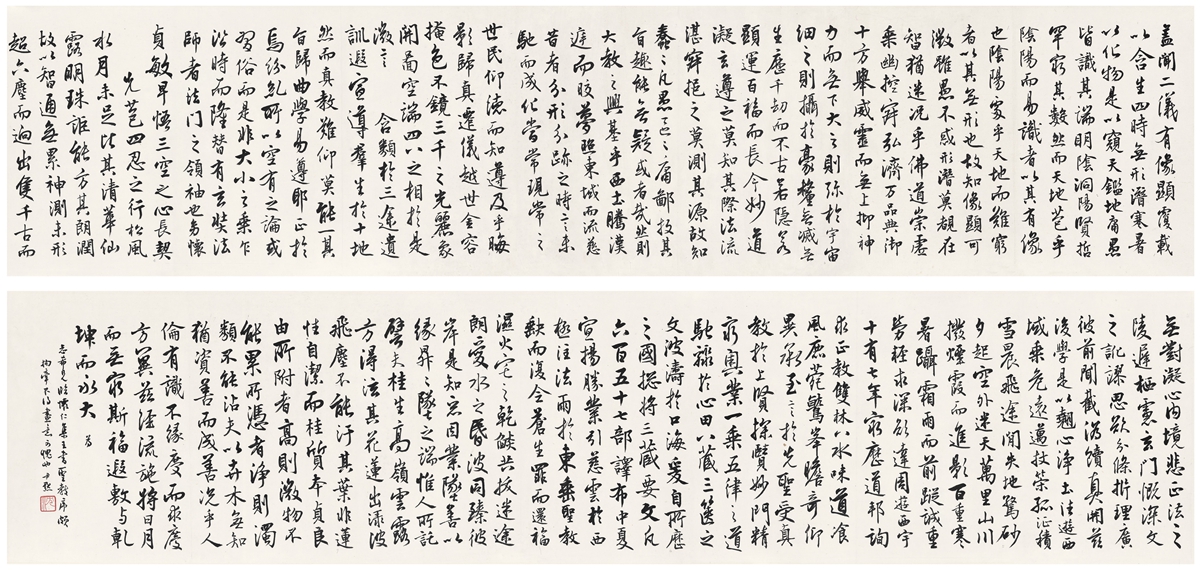 蓋聞二儀有像顯覆載
以含生四時無形潛寒暑
以化物是以窺天鑑地庸愚
皆識其端明陰洞陽賢哲
罕窮其數然而天地苞乎
陰陽而易識者以其有像
也陰陽處乎天地而難窮
者以其無形也故知像顯可
徵雖愚不惑形潛莫覩在
智猶迷況乎佛道崇虛
乘幽控寂弘濟万品典御
十方舉威靈而無上抑神
力而無下大之則彌於宇宙
細之則攝於豪釐無滅無
生歷千劫而不古若隱若
顯運百福而長今妙道
凝玄遵之莫知其際法流
湛寂挹之莫測其源故知
蠢々凡愚區々庸鄙投其
旨趣能無疑惑者哉然則
大教之興基乎西土騰漢
庭而皎夢照東域而流慈
昔者分形分跡之時言未
馳而成化當常現常之
世民仰德而知遵及乎晦
影歸真遷儀越世金容
掩色不鏡三千之光麗象
開圖空端四八之相於是
微言 含類於三途遺
訓遐宣導群生於十地
然而真教難仰莫能一其
旨歸曲學易遵耶正於
焉紛糺所以空有之論或
習俗而是非大小之乘乍
沿時而隆替有玄奘法
師者法門之領袖也幼懷
貞敏早悟三空之心長契
先苞四忍之行松風
水月未足比其清華仙
露明珠詎能方其朗潤
故以智通無累神測未形
超六塵而迥出隻千古而
無對凝心內境悲正法之
陵遲栖慮玄門慨深文
之訛謬思欲分條析理廣
彼前聞截偽續真開茲
後學是以翹心淨土往遊西
域乘危遠邁杖策孤征積
雪晨飛途閒失地驚砂
夕起空外迷天萬里山川
撥煙霞而進影百重寒
暑躡霜雨而前蹤誠重
勞輕求深願達周遊西宇
十有七年窮歷道邦詢
求正教雙林八水味道飡
風鹿菀鷲峯瞻奇仰
異承至言於先聖受真
教於上賢探賾妙門精
窮奧業一乘五律之道
馳驟於心田八藏三篋之
文波濤於口海爰自所歷
之國總將三藏要文凡
六百五十七部譯布中夏
宣揚勝業引慈雲於西
極注法雨於東垂聖教
缺而復全蒼生罪而還福
濕火宅之乾焰共拔迷途
朗愛水之昏波同臻彼
岸是知惡因業墜善以
緣昇々墜之端惟人所託
譬夫桂生高嶺雲露
方得泫其花蓮出淥波
飛塵不能汙其葉非蓮
性自潔而桂質本貞良
由所附者高則微物不
能累所憑者淨則濁
類不能沾夫以卉木無知
猶資善而成善況乎人
倫有識不緣慶而求慶
方冀茲經流施將日月
而無窮斯福遐敷與乾
坤而永大